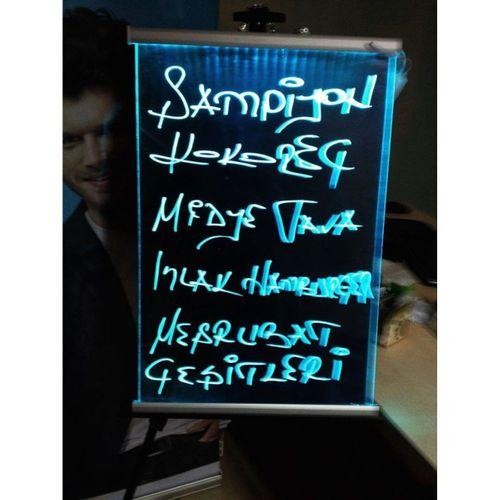 ŞAMPİYON
KOKOREÇ
MİDYE TAVA
ISLAK HAMBURGER
MEŞRUBAT
ÇEŞİTLERİ